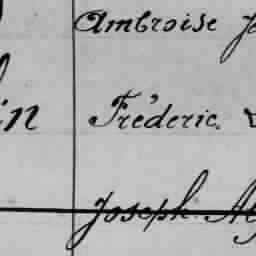 Ambroise
in Fréderic.
Joseph